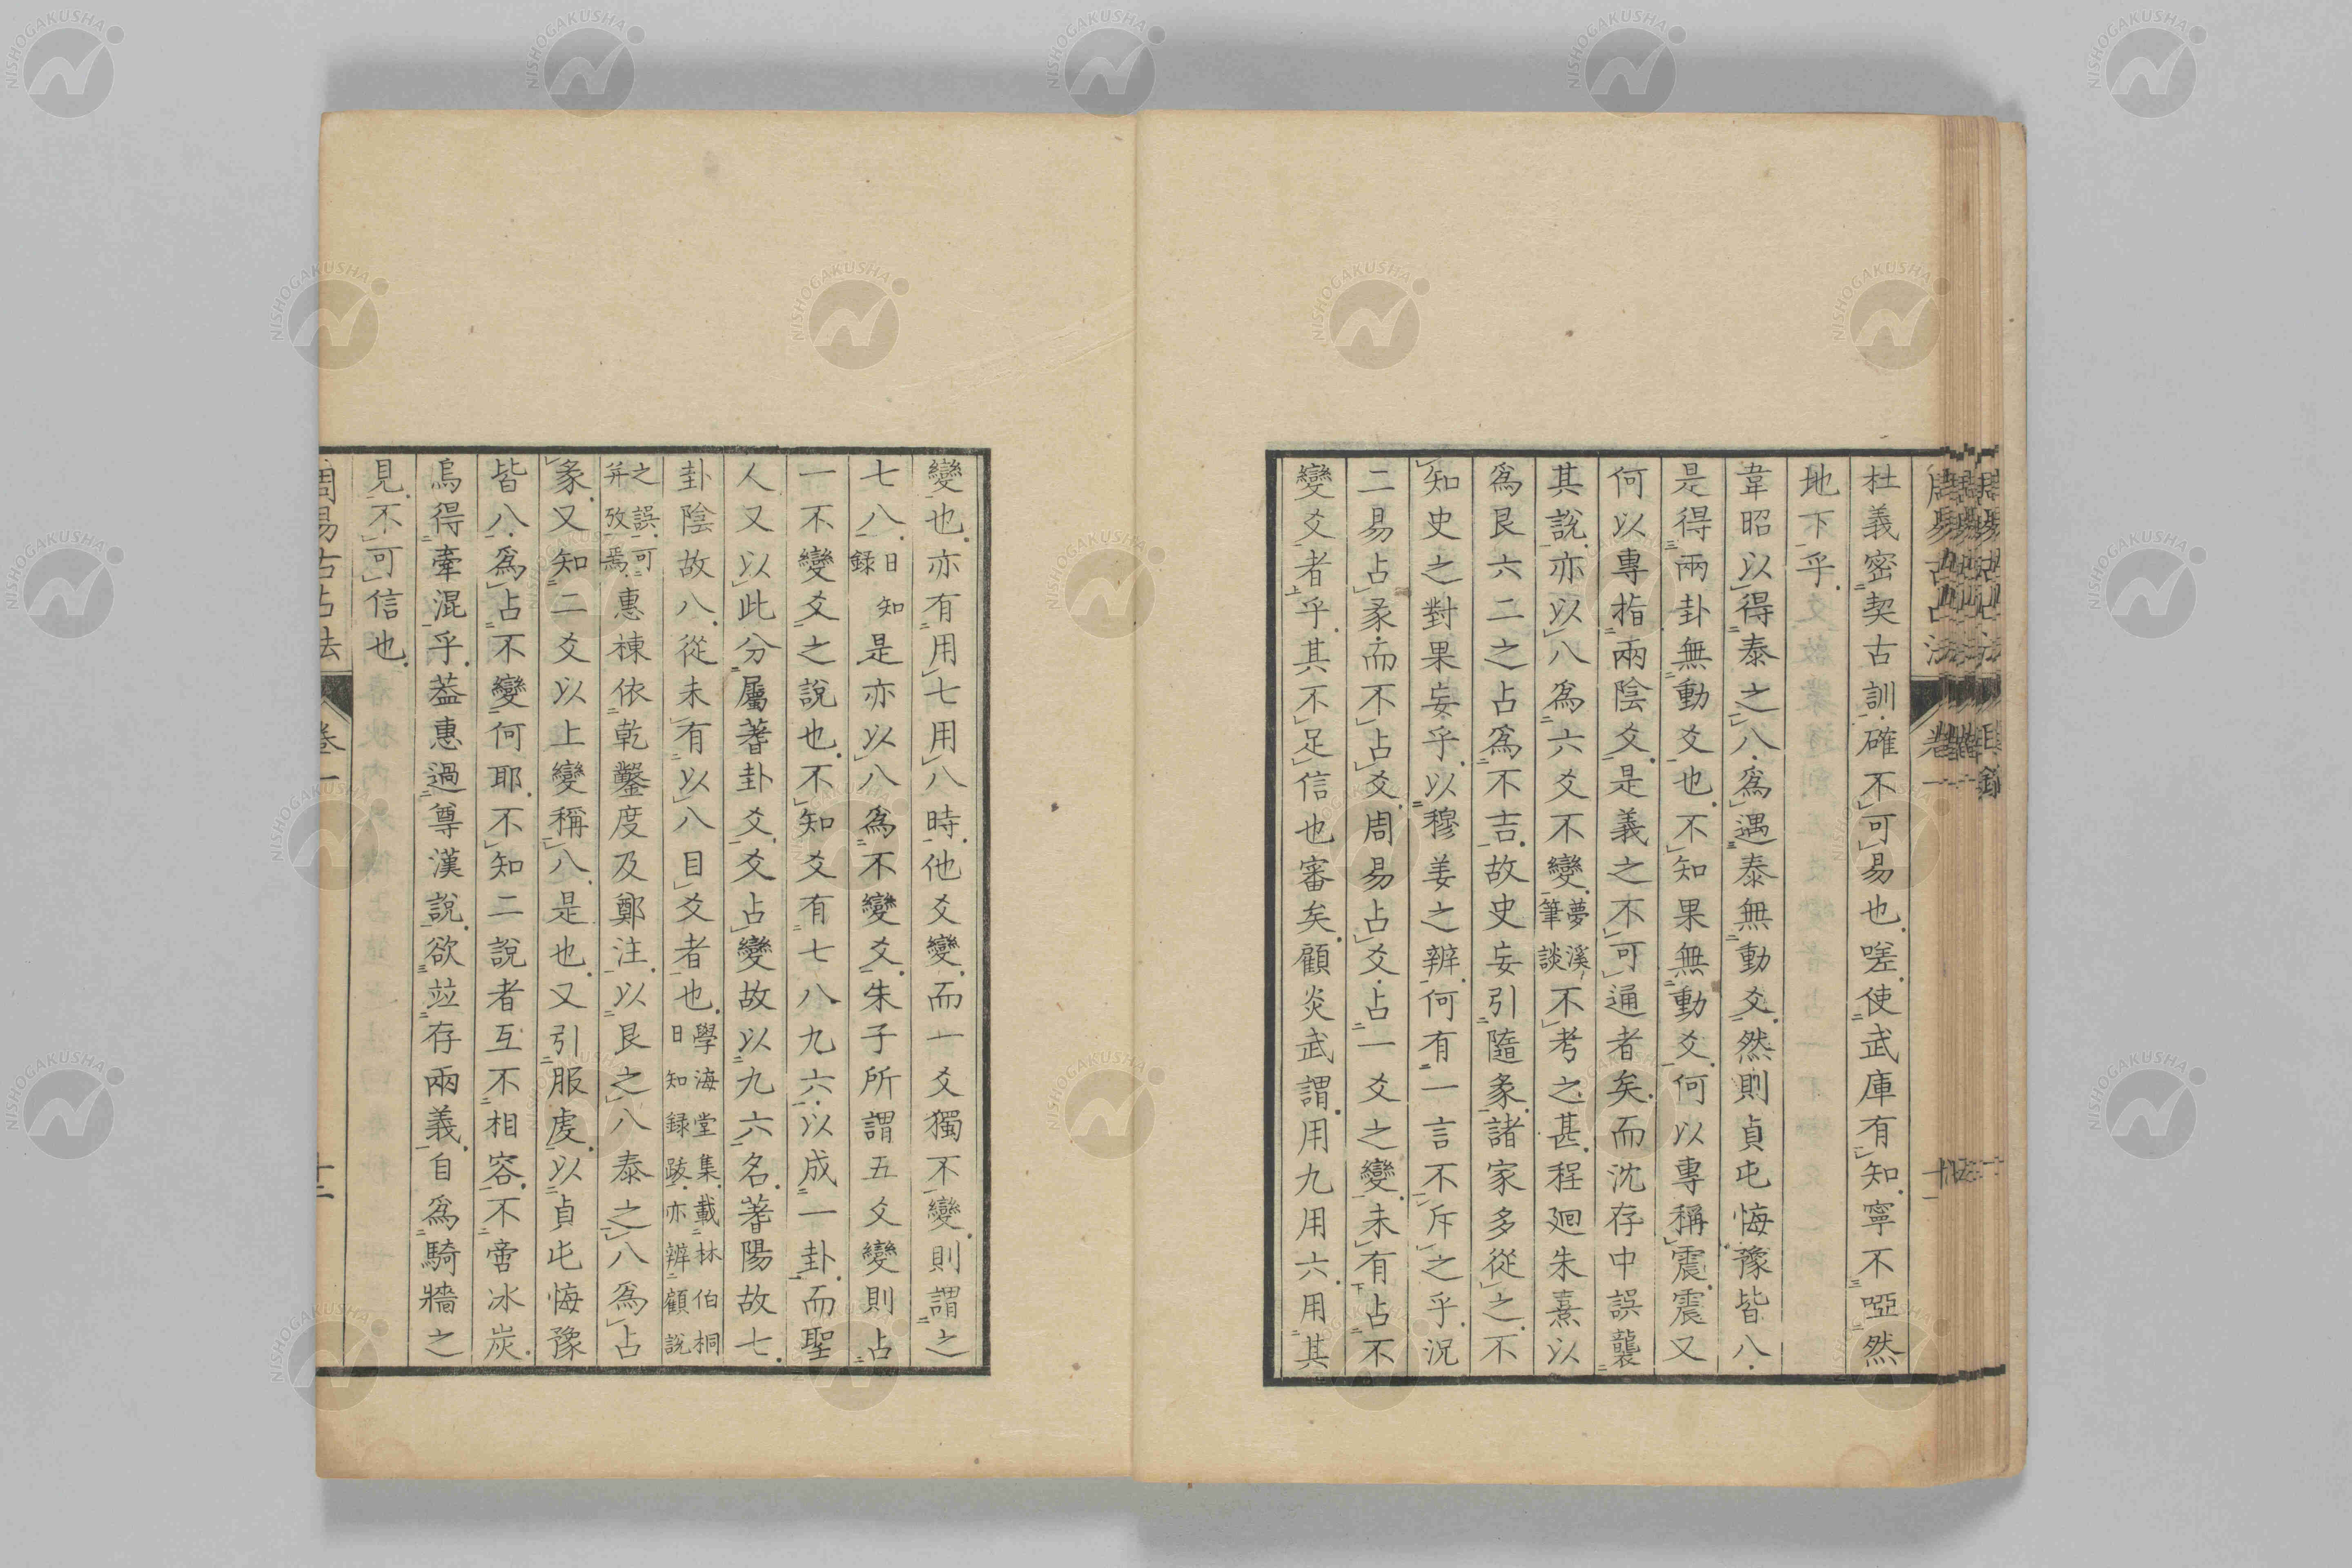 杜義密契古訓確不可易也嗟使武庫有知寧不啞然
地下乎
韋昭以得泰之八爲遇泰無動爻然則貞屯悔豫皆八
是得兩卦無動爻也不知果無動爻何以專稱震震又
何以專指兩陰爻是義之不可通者矣而沈存中誤襲
其說亦以八爲六爻不變夢溪筆談不考之甚程迥朱熹以
爲艮六二之占爲不吉故史妄引隨彖諸家多從之不
知史之對果妄乎以穆姜之辨何有一言不斥之乎況
二易占彖而不占爻周易占爻占一爻之變未有占不
變爻者乎其不足信也審矣顧炎武謂用九用六用其
變也亦有用七用八時他爻變而一爻獨不變則謂之
七八日知録是亦以八爲不變爻朱子所謂五爻變則占
一不變爻之說也不知爻有七八九六以成一卦而聖
人又以此分屬蓍卦爻爻占變故以九六名蓍陽故七
卦陰故八從未有以八目爻者也學海堂集載林伯桐日知録跋亦辨顧說
之誤可并攷焉惠棟依乾鑿度及鄭注以艮之八泰之八爲占
彖又知二爻以上變稱八是也又引服虔以貞屯悔豫
皆八爲占不變何耶不知二說者互不相容不啻冰炭
烏得牽混乎葢惠過尊漢說欲竝存兩義自爲騎牆之
見不可信也
周易古占法
卷一
十二
NISHOGAKUSHA